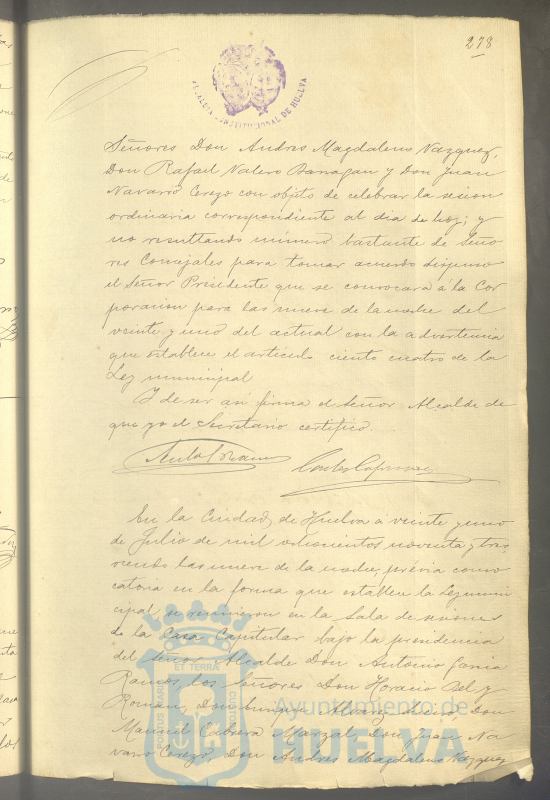 278
ALCALDIA CONSTITUCIONAL DE HUELVA
Señores Don Andres Magdaleno Vazquez,
Don Rafael Valero Barragan y Don Juan
Navarro Cerezo con objeto de celebrar la sesion
ordinaria correspondiente al dia de hoy; y
no resultando número bastante de Seño
res Concejales para tomar acuerdo dispuso
el Señor Presidente que se convocara á la Cor
poracion para las nueve de la noche del
veinte y uno del actual con la advertencia
que establece el artículo ciento cuatro de la
Ley municipal
Y de ser asi firma el Señor Alcalde de
que yo el Secretario certifico.
En la Ciudad de Huelva á veinte y uno
de Julio de mil ochocientos noventa y tres
siendo las nueve de la noche, prévia convo
catoria en la forma que establece la Ley muni
cipal se reunieron en la Sala de sesiones
de la Casa Capitular bajo la presidencia
del Señor Alcalde Don Antonio Garcia
Ramos los Señores Don Horacio Bel y
Roman, Don Don
Manuel Cabrera Marzal, Don Juan Na
varro Cerezo, Don Andres Magdaleno Vazquez
Ayuntamiento de
HUELVA
ET TERRA
PORTUS MARIS
CUSTODIA